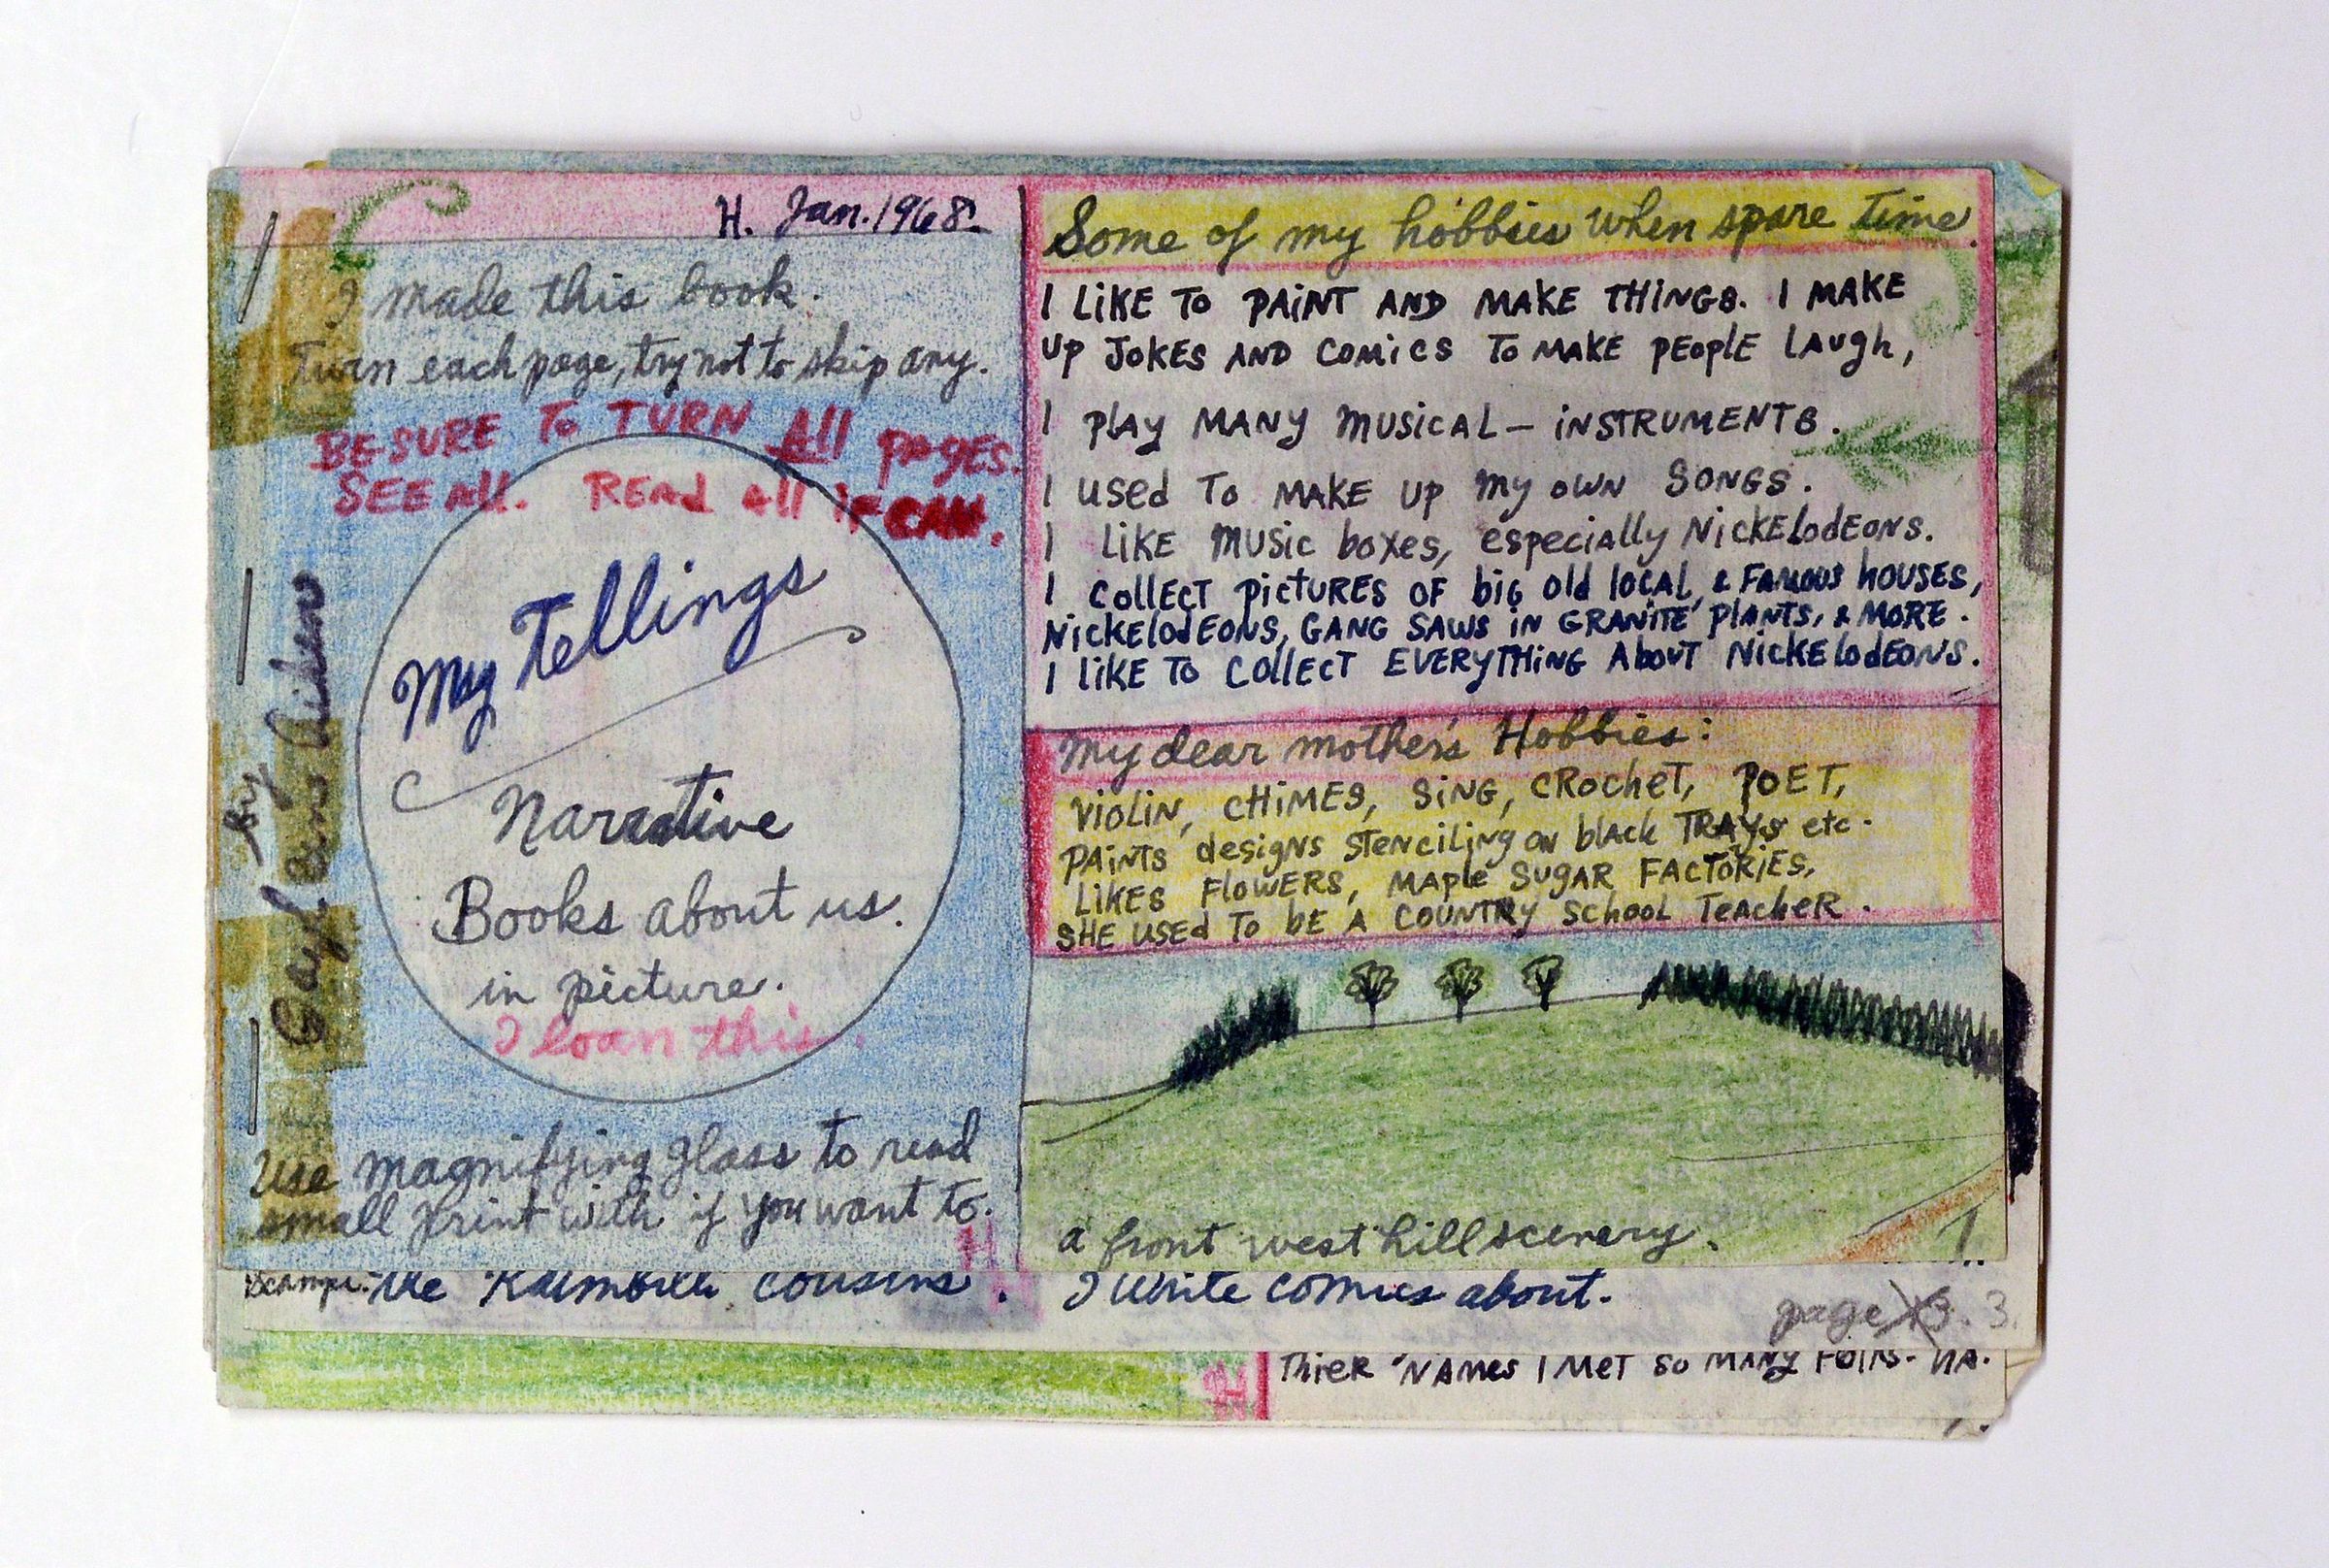 H. Jan. 1968.
I made this book.
Turn each page, try not to skip any.
BE SURE TO TURN All PAGES.
SEE All. READ all if CAN.
My Tellings
Narrative
Books about us.
in picture.
I loan this.
Use magnifying glass to read
small print with if you want to.
by
Gayleen Aikens
Some of my hobbies when spare time.
I LIKE TO PAINT AND MAKE THINGS. I MAKE
UP JOKES AND COMICS TO MAKE PEOPLE LAUGH,
I PLAY MANY MUSICAL – INSTRUMENTS.
I USED TO MAKE UP MY OWN SONGS.
I LIKE MUSIC boxes, especially NICKELODEONS.
I COLLECT PICTURES OF big old local, & FAMOUS HOUSES,
NICKELODEONS, GANG SAWS IN GRANITE PLANTS, & MORE.
I LIKE TO COLLECT EVERYTHING ABOUT NICKELODEONS.
My dear mother's Hobbies:
VIOLIN, CHIMES, SING, CROCHET, POET,
PAINTS designs STENCILING ON black TRAYS etc.
LIKES FLOWERS, MAPLE SUGAR FACTORIES,
SHE USED TO BE A COUNTRY SCHOOL TEACHER.
a front west hill scenery.
1.
the Raimbilli cousins. I write comics about.
page 3. 3.
THIER NAMES I MET SO MANY FOLKS. HA.